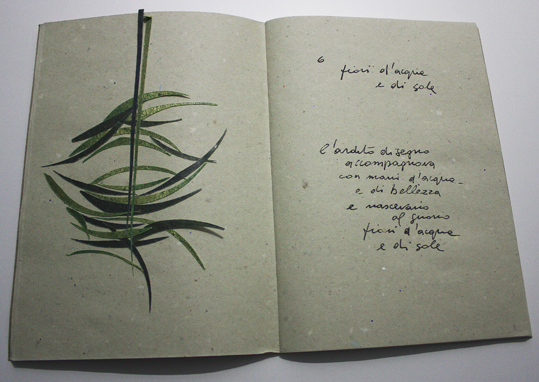 6
fiori d'acqua
e di sole
l'ardito disegno
accompagnava
con mani d'acqua
e di bellezza
e nascevano
al
fiori d'acqua
e di sole